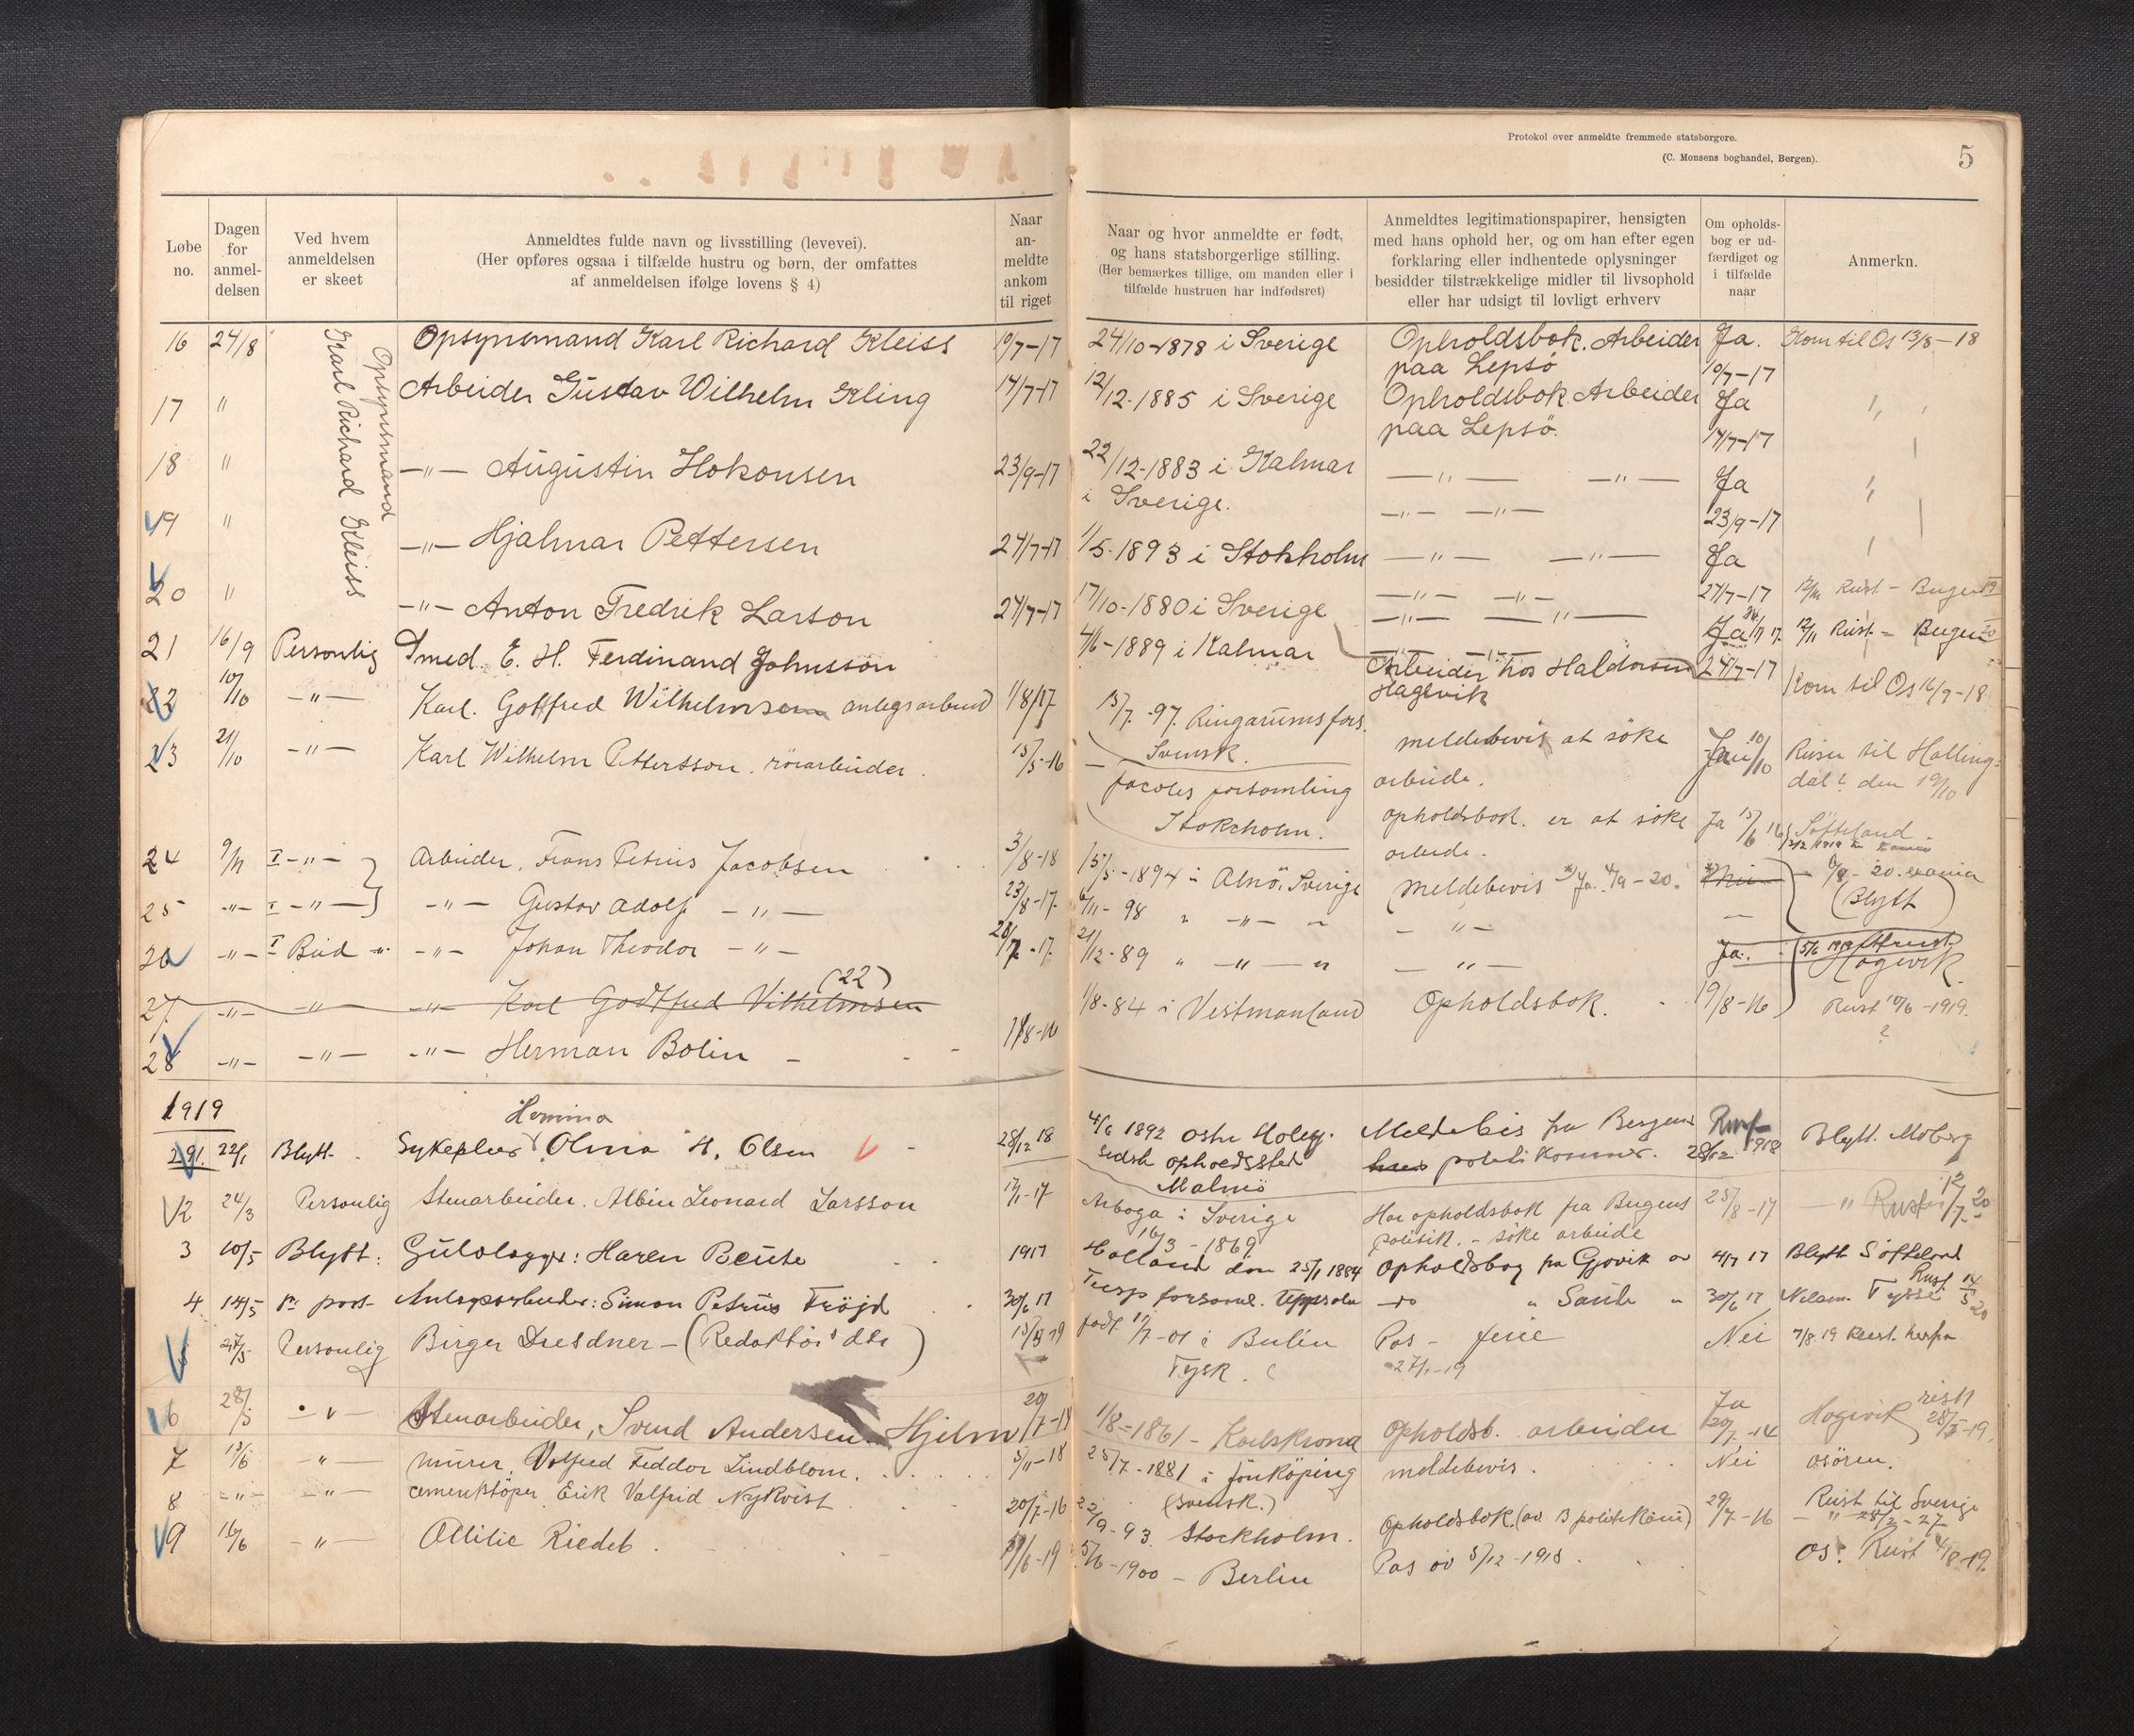 Protokol over anmeldte fremmede statsborgere.
(C. Monsens boghandel, Bergen).
5
Løbe no.
Dagen for anmel- delsen
Ved hvem anmeldelsen er skeet
Anmeldtes fulde navn og livsstilling (levevei).
(Her opføres ogsaa i tilfælde hustru og børn, der omfattes
af anmeldelsen ifølge lovens § 4)
Naar an- meldte ankom til riget
Naar og hvor anmeldte er født,
og hans statsborgerlige stilling.
(Her bemærkes tillige, om manden eller i
tilfælde hustruen har indfødsret)
Anmeldtes legitimationspapirer, hensigten
med hans ophold her, og om han efter egen
forklaring eller indhentede oplysninger
besidder tilstrækkelige midler til livsophold
eller har udsigt til lovligt erhverv
Om opholds- bog er ud- færdiget og i tilfælde naar
Anmerkn.
16 24/8 Opsynsmand Karl Richard Kleiss Opsynsmand Karl Richard Kleiss 10/7-17 24/10-1878 i Sverige Opholdsbok. Arbeider paa Lepsö Ja. 10/7-17 Kom til Os 13/8-18
17 " Arbeider Gustav Wilhelm Kling 14/7-17 12/12-1885 i Sverige Opholdsbok Arbeider paa Lepsö. Ja 14/7-17 "
18 " —"— Augustin Hokonsen 23/9-17 22/12-1883 i Kalmar i Sverige. —"— —"— Ja 23/9-17 "
19 " —"— Hjalmar Pettersen 27/7-17 1/5-1893 i Stokholm —"— —"— Ja 27/7-17
20 " —"— Anton Fredrik Larson 27/7-17 17/10-1880 i Sverige —"— —"— Ja
21 16/9 Personlig Smed. E. H. Ferdinand Johnsson 4/6-1889 i Kalmar Arbeider hos Haldorsen Hagevik 24/7-17 Kom til Os 16/9-18
22 10/10 —"— Karl. Gotfred Wilhelmsen anlegsarbeid 1/8/17 15/7-97. Ringarumsfors. Svensk. meldebevis at söke arbeide.
23 21/10 —"— Karl Wilhelm Pettersson. rörarbeider. 15/5-16 Jacobs forsamling Stokcholm. opholdsbok. er at söke arbeide. Ja 15/6 16 Söfteland
24 —"— Arbeider, Frans Petrus Jacobsen 3/8-18 15/5-1894 i Alnö, Sverige meldebevis Ja. 4/9-20. (Blytt)
25 —"— —"— —"— Gustav Adolf —"— 23/8-17. 6/11-98 " —"— " — "—
26 —"— Bud —"— —"— Johan Theodor —"— 21/12-89 " —"— " — "— Ja. Hagevik.
27. —"— —"— —"— Karl Godtfred Vilhelmsen (22)
28 —"— —"— —"— Herman Bolin 1/8-84 i Vestmanland Opholdsbok. 19/8-16 Reist 10/6-1919. ?
1919
Hemina
291. 22/1 Blytt. Sykepleer Olma H. Olsen 28/12 18 4/6 1892 sidste opholdssted Malmö Meldebevis fra Bergens politikammer. 28/12 1918 Blytt. Moberg
2 24/3 Personlig Stenarbeider. Albin Leonard Larsson 17/1-17 Arboga i Sverige 16/3-1869 Har opholdsbok fra Bergens politik. - söke arbeide 25/8-17 —" Reist 12/7-20
3 10/5 Blytt: Gulvlægger: Haren Beute 1917 Holland den 25/1 1884 Opholdsbog fra Gjøvik av 4/7 17 Blytt Söfteland
4 14/5 pr post Anlegsarbeider: Simon Petrus Fröjd 30/6 17 forsaml. Uppsala —do " Saude " 30/6 17 Nilsen. Tysse Reist 14/5 20
5 27/5 Personlig Birger Dresdner - (Redaktör dtr) 15/5 19 født 11/7-01 i Berlin Tysk. Pas - ferie 27/1-19 Nei 7/8.19 Reist herfra
6 28/5 —"— Stenarbeider, Svend Andersen Hjelm 20/7-14 1/8-1861 - Karlskrona Opholdsb. arbeider Ja 20/7-14 Hagevik reist 28/5-19.
7 13/6 —"— murer, Valfred Feddor Lindblom. 5/11-18 25/7-1881 i Jönköping (svensk.) meldebevis. Nei osören.
8 —"— —"— cementstöper Erik Valfrid Nykvist 20/7-16 22/9-93. Stockholm. Opholdsbok. (av B politikam) 29/7-16 Reist til Sverige —"— 28/2-27
9 16/6 —"— Ottilie Riedel. 5/6-1900 - Berlin Pas av 5/12-1918. Os. Reist 4/8-19.